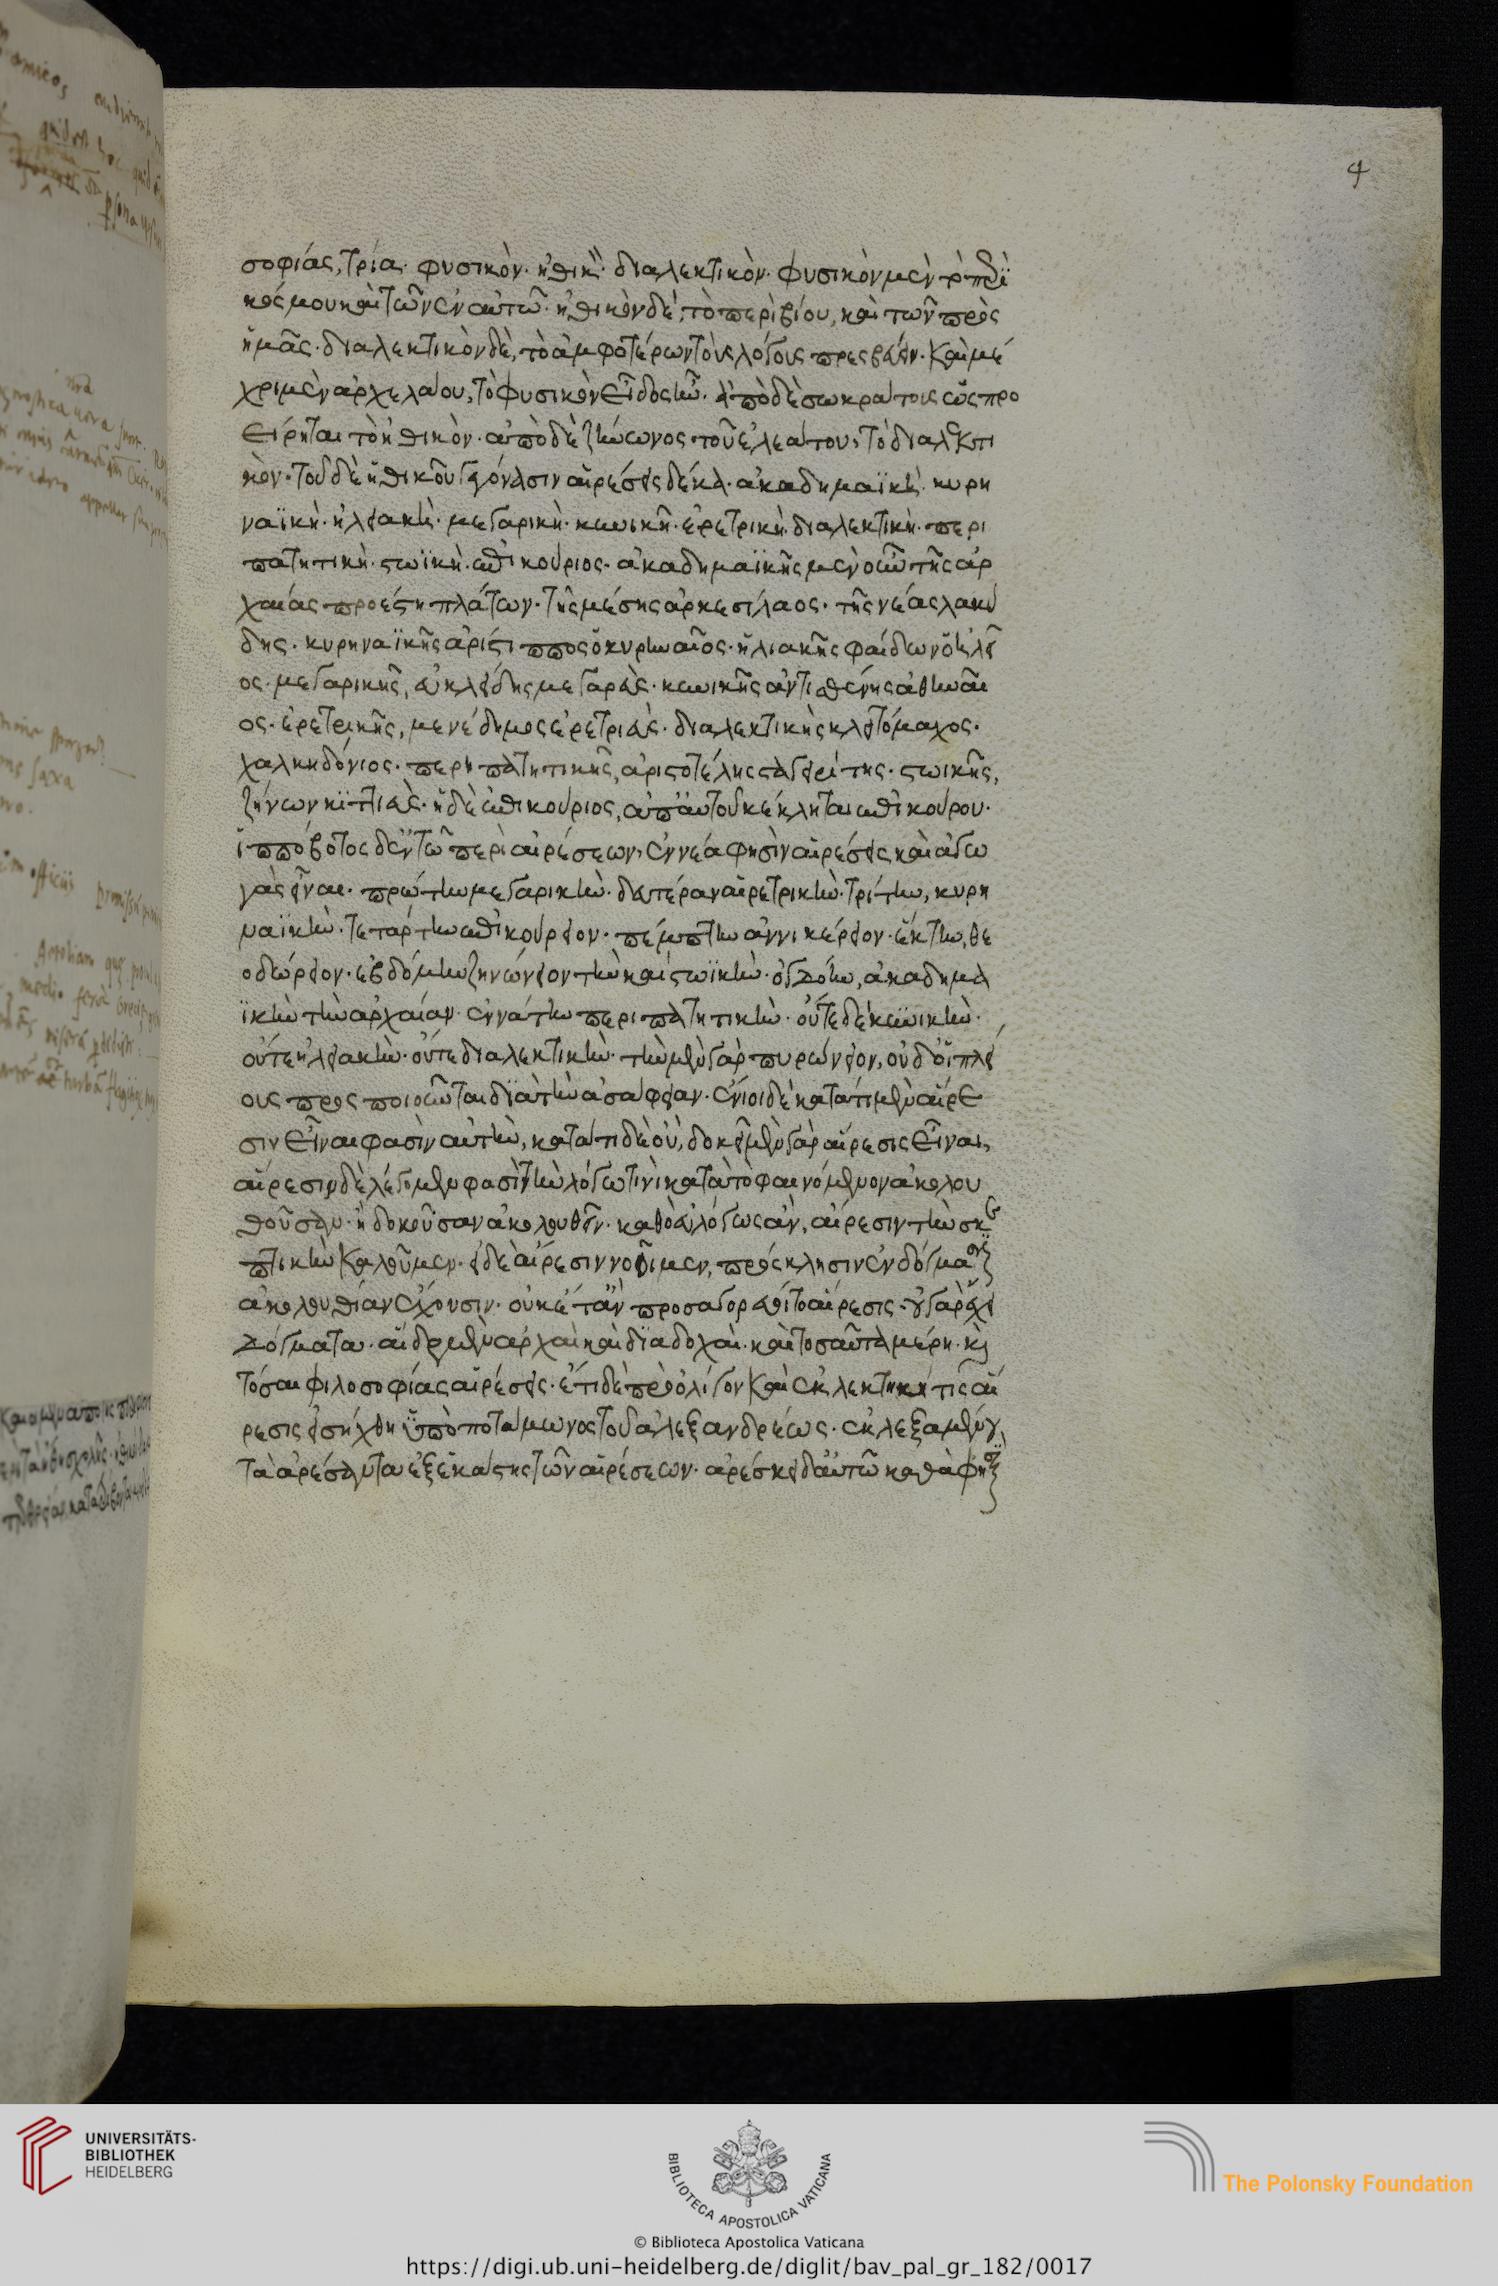 4
σοφίας, τρία· φυσικὸν· ἠθικὸν· διαλεκτικὸν· φυσικὸν μὲν τὸ περὶ
κόσμου καὶ τῶν ἐν αὐτῶ· ἠθικὸν δὲ, τὸ περὶ βίου, καὶ τῶν πρὸς
ἡμᾶς· διαλεκτικὸν δὲ, τὸ ἀμφοτέρων τοὺς λόγους πρεσβεῦον· καὶ μέ
χρι μὲν ἀρχελάου, τὸ φυσικὸν εἶδος ἦν· ἀπὸ δὲ σωκράτους ὡς προ
είρηται τὸ ἠθικὸν· ἀπὸ δὲ ζήνωνος τοῦ ἐλεάτου, τὸ διαλεκτι
κὸν· τοῦ δὲ ἠθικοῦ γεγόνασιν αἱρέσεις δέκα· ἀκαδημαϊκὴ· κυρη
ναϊκὴ· ἠλειακὴ· μεγαρικὴ· κυνικὴ· ἐρετρικὴ· διαλεκτικὴ· περι
πατητικὴ· στωϊκὴ· ἐπικούριος· ἀκαδημαϊκῆς μὲν οὖν τῆς ἀρ
χαίας προέστη πλάτων· τῆς μέσης ἀρκεσίλαος· τῆς νέας λακύ
δης· κυρηναϊκῆς ἀρίστιππος ὁ κυρηναῖος· ἠλιακῆς φαίδων ὁ ἠλεῖ
ος· μεγαρικῆς, εὐκλείδης μεγαρεὺς· κυνικῆς ἀντισθένης ἀθηναῖ
ος· ἐρετρικῆς, μενέδημος ἐρετριεὺς· διαλεκτικῆς κλειτόμαχος·
χαλκηδόνιος· περηπατητικῆς, ἀριστοτέλης σταγειρίτης· στωικῆς,
ζήνων κϊττιεὺς· ἡ δὲ ἐπικούριος, ἀπ' αὐτοῦ κέκληται ἐπικούρου·
ἱππόβοτος δ' ἐν τῶ περὶ αἱρέσεων, ἐννέα φησὶν αἱρέσεις καὶ ἀγω
γὰς εἶναι· πρώτην μεγαρικὴν· δευτέραν αἰρετρικὴν· τρίτην, κυρη
ναϊκὴν· τετάρτην ἐπικούρειον· πέμπτην ἀννικέρειον· ἕκτην, θε
οδώρειον· ἑβδόμην ζηνώνειον τὴν καὶ στωϊκὴν· ὀγδόην, ἀκαδημα
ϊκὴν τὴν ἀρχαίαν· ἐννάτην περιπατητικὴν· οὔτε δὲ κυνικὴν·
οὔτε ἠλειακὴν· οὔτε διαλεκτικὴν· τὴν μὲν γὰρ πυρώνειον, οὐδ' οἱ πλεί
ους προσποιοῦνται διὰ τὴν ἀσάφειαν· ἔνιοι δὲ κατά τι μὲν αἵρε
σιν εἶναι φασὶν αὐτὴν, κατά τι δὲ οὐ, δοκεῖ μὲν γὰρ αἵρεσις εἶναι,
αἵρεσιν δὲ λέγομεν φασὶ τὴν λόγω τινὶ κατὰ τὸ φαινόμενον ἀκολου
θοῦσαν· ἢ δοκοῦσαν ἀκολουθεῖν· καθὸ εὐλόγως ἂν, αἵρεσιν τὴν σκε
πτικὴν καλοῦμεν· εἰ δὲ αἵρεσιν νοοῖμεν, πρόσκλησιν ἐν δόγμασιν
ἀκολουθίαν ἔχουσιν· οὐκέτ' ἂν προσαγορεύοιτο αἵρεσις· οὐ γὰρ ἔχει
δόγματα· αἵδε μὲν ἀρχαὶ καὶ διαδοχαὶ· καὶ τοσαῦτα μέρη· καὶ
τόσαι φιλοσοφίας αἱρέσεις· ἔτι δὲ πρὸ ὀλίγου καὶ ἐκλεκτική τις αἵ
ρεσις εἰσήχθη ὑπὸ ποτάμωνος τοῦ ἀλεξανδρέως· ἐκλεξαμένου
τὰ ἀρέσαντα ἐξ ἑκάστης τῶν αἱρέσεων· ἀρέσκει δ' αὐτῶ καθά φησιν
UNIVERSITÄTS-
BIBLIOTHEK
HEIDELBERG
BIBLIOTECA APOSTOLICA VATICANA
The Polonsky Foundation
© Biblioteca Apostolica Vaticana
https://digi.ub.uni-heidelberg.de/diglit/bav_pal_gr_182/0017